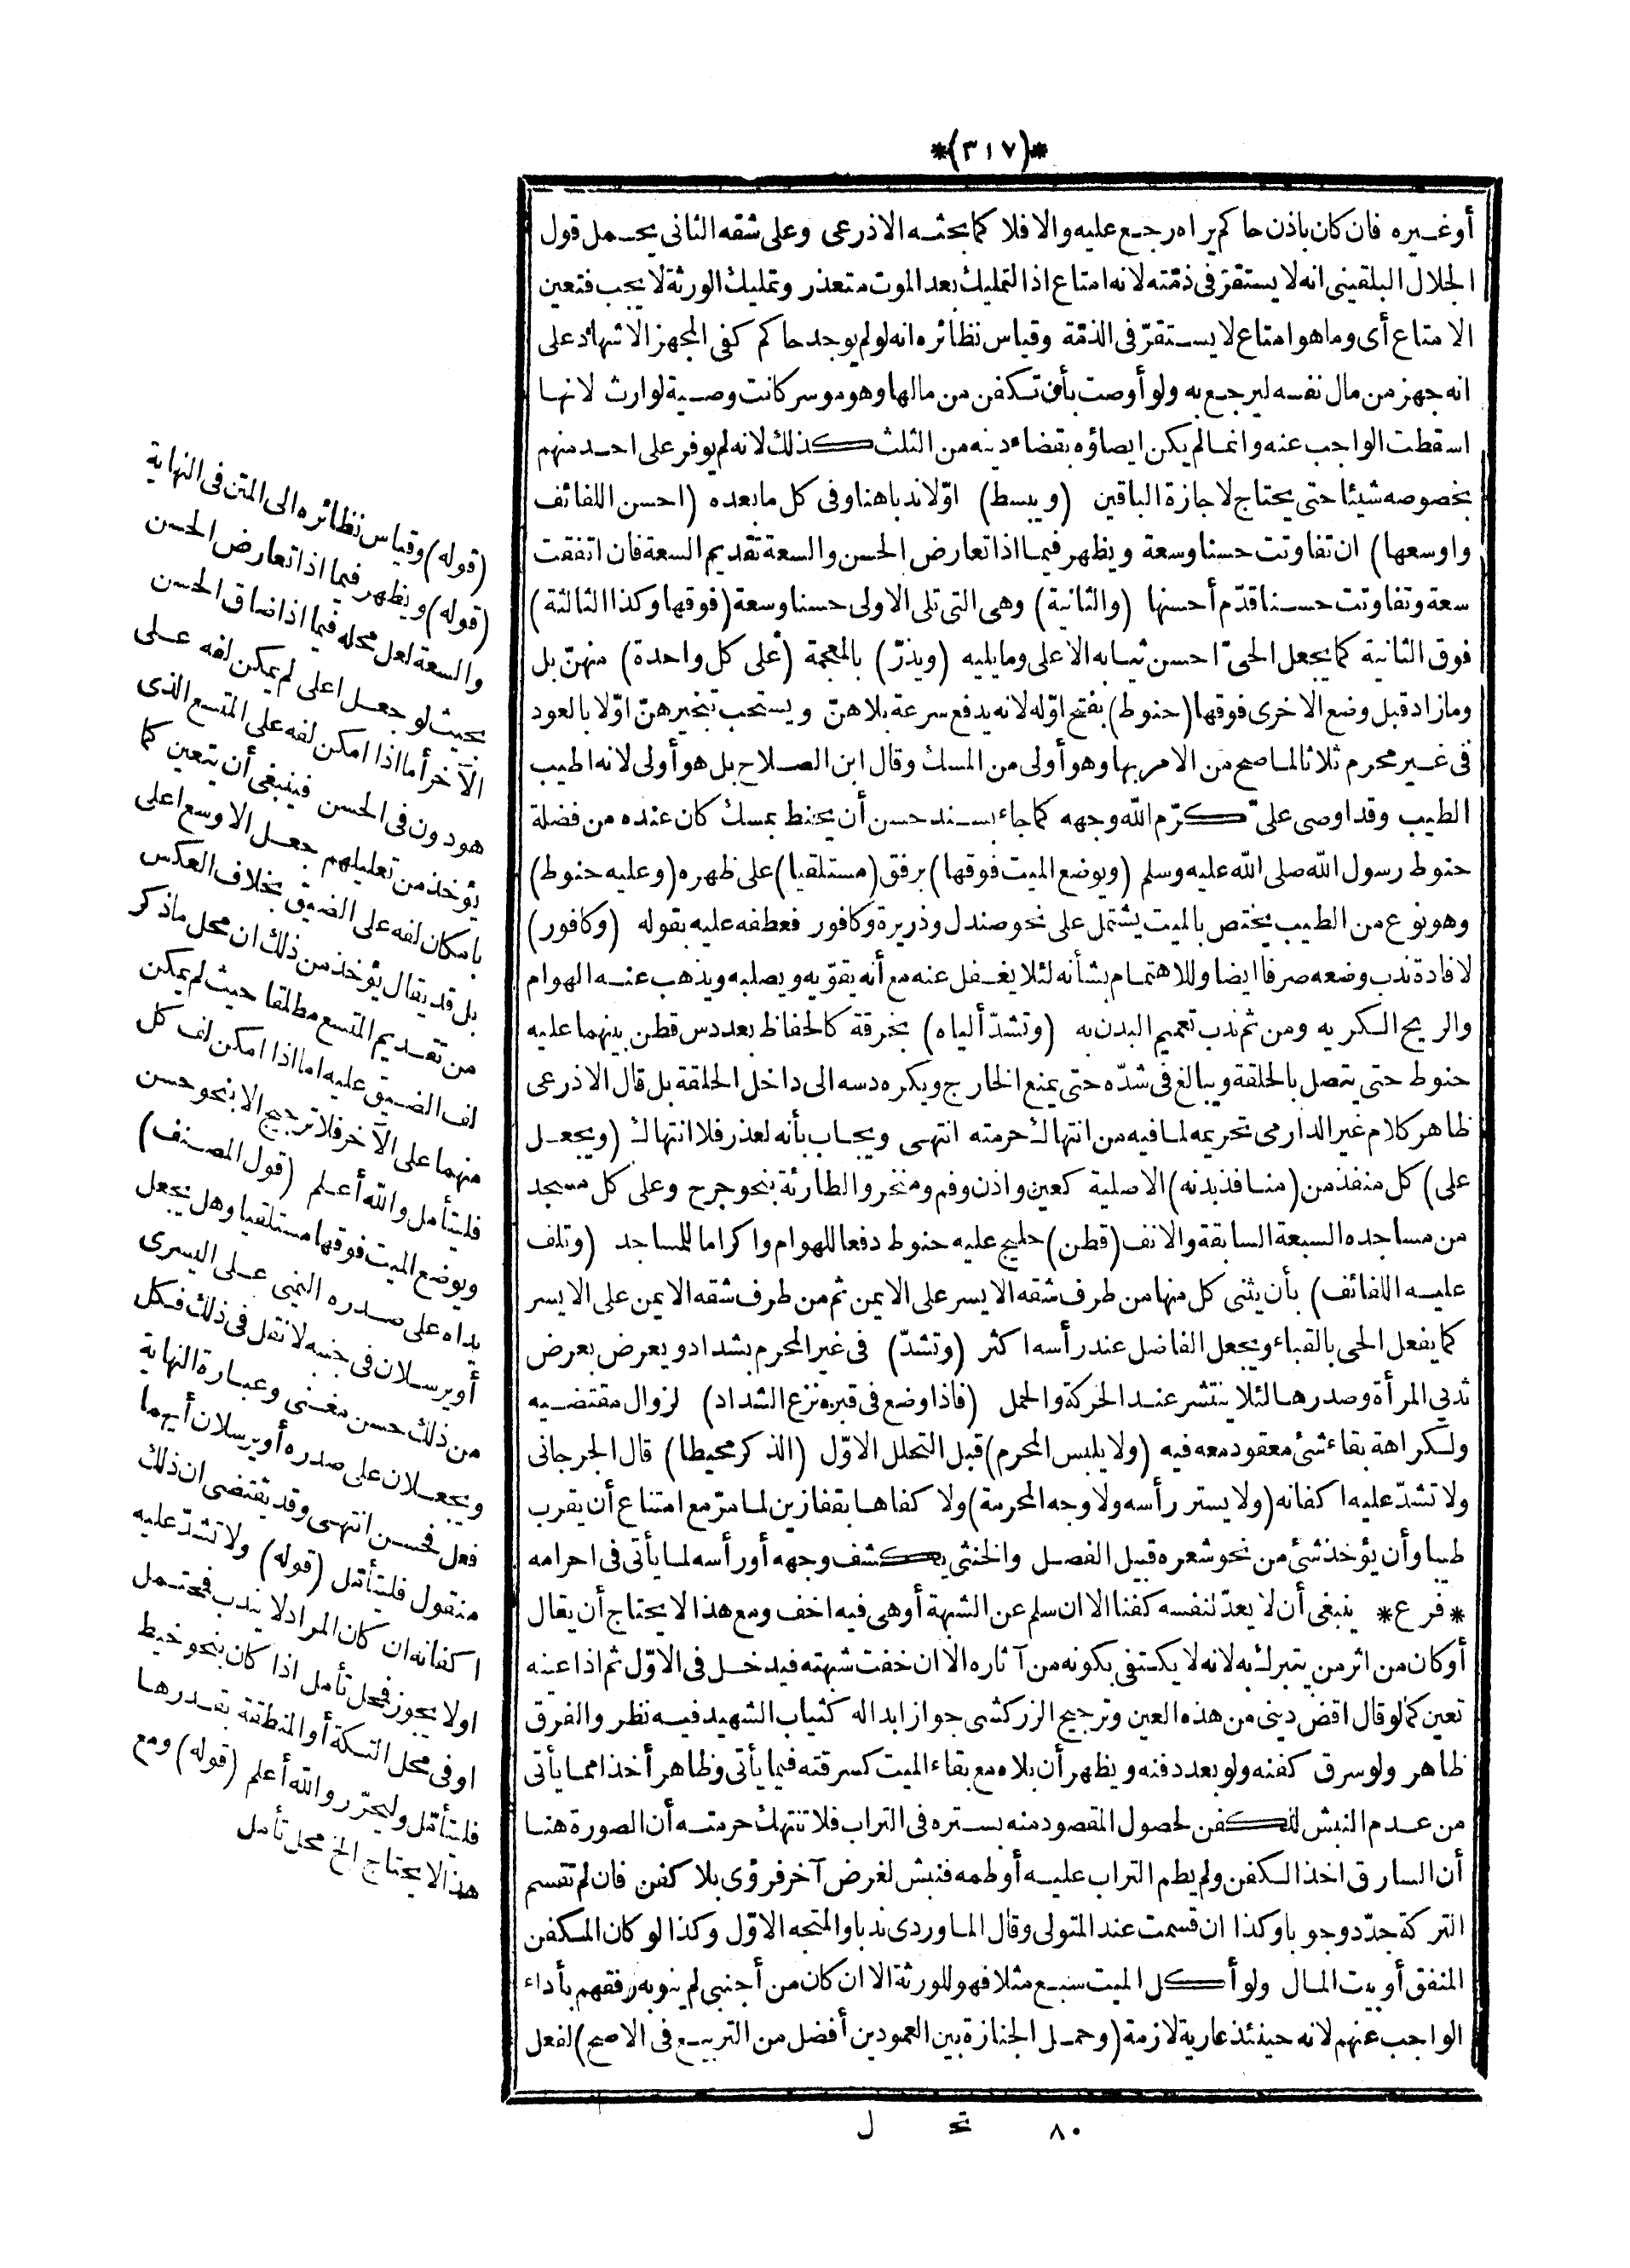 *(٣١٧)*
أوغيره فان كان باذن حاكم يراه رجع عليه والا فلا كما بحثه الاذرعى وعلى شقه الثانى يحمل قول
الجلال البلقينى انه لا يستقرّ فى ذمّته لانه امتاع اذ التمليك بعد الموت متعذر وتمليك الورثة لا يجب فتعين
الامتاع أى وما هو امتاع لا يستقرّ فى الذمّة وقياس نظائره انه لو لم يوجد حاكم كفى المجهز الاشهاد على
انه جهز من مال نفسه ليرجع به ولو أوصت بأن تكفن من مالها وهو موسر كانت وصية لوارث لانها
اسقطت الواجب عنه وانما لم يكن ايصاؤه بقضاء دينه من الثلث كذلك لانه لم يوفر على احد منهم
بخصوصه شيئا حتى يحتاج لاجازة الباقين (ويبسط) اوّلا ندبا هنا وفى كل ما بعده (احسن اللفائف
واوسعها) ان تفاوتت حسنا وسعة ويظهر فيما اذا تعارض الحسن والسعة تقديم السعة فان اتفقت
سعة وتفاوتت حسنا قدّم أحسنها (والثانية) وهى التى تلى الاولى حسنا وسعة (فوقها وكذا الثالثة)
فوق الثانية كما يجعل الحىّ احسن ثيابه الاعلى وما يليه (ويذرّ) بالمعجمة (على كل واحدة) منهنّ بل
وما زاد قبل وضع الاخرى فوقها (حنوط) بفتح اوّله لانه يدفع سرعة بلاهنّ ويستحب تبخيرهنّ اوّلا بالعود
فى غير محرم ثلاثا لما صح من الامر بها وهو أولى من المسك وقال ابن الصلاح بل هو أولى لانه اطيب
الطيب وقد اوصى علىّ كرّم الله وجهه كما جاء بسند حسن أن يحنط بمسك كان عنده من فضلة
حنوط رسول الله صلى الله عليه وسلم (ويوضع الميت فوقها) برفق (مستلقيا) على ظهره (وعليه حنوط)
وهو نوع من الطيب يختص بالميت يشتمل على نحو صندل وذريرة وكافور فعطفه عليه بقوله (وكافور)
لافادة ندب وضعه صرفا ايضا وللاهتمام بشأنه لئلا يغفل عنه مع أنه يقوّيه ويصلبه ويذهب عنه الهوام
والريح الكريه ومن ثم ندب تعميم البدن به (وتشدّ ألياه) بخرقة كالحفاظ بعد دس قطن بينهما عليه
حنوط حتى يتصل بالحلقة ويبالغ فى شدّه حتى يمنع الخارج ويكره دسه الى داخل الحلقة بل قال الاذرعى
ظاهر كلام غير الدارمى تحريمه لما فيه من انتهاك حرمته انتهى ويجاب بأنه لعذر فلا انتهاك (ويجعل
على) كل منفذ من (منافذ بدنه) الاصلية كعين واذن وفم ومنخر والطارئة بنحو جرح وعلى كل مسجد
من مساجده السبعة السابقة والانف (قطن) حليج عليه حنوط دفعا للهوام واكراما للمساجد (وتلف
عليه اللفائف) بأن يثنى كل منها من طرف شقه الايسر على الايمن ثم من طرف شقه الايمن على الايسر
كما يفعل الحى بالقباء ويجعل الفاضل عند رأسه اكثر (وتشدّ) فى غير المحرم بشداد ويعرض بعرض
ثديى المرأة وصدرها لئلا ينتشر عند الحركة والحمل (فاذا وضع فى قبره نزع الشداد) لزوال مقتضيه
ولكراهة بقاء شئ معقود معه فيه (ولا يلبس المحرم) قبل التحلل الاوّل (الذكر محيطا) قال الجرجانى
ولا تشدّ عليه اكفانه (ولا يستر رأسه ولا وجه المحرمة) ولا كفاها بقفازين لما مرّ مع امتناع أن يقرب
طيبا وأن يؤخذ شئ من نحو شعره قبيل الفصل والخنثى يكشف وجهه أو رأسه لما يأتى فى احرامه
* فرع * ينبغى أن لا يعدّ لنفسه كفنا الا ان سلم عن الشبهة أو هى فيه اخف ومع هذا لا يحتاج أن يقال
أو كان من اثر من يتبرك به لانه لا يكتفى بكونه من آثاره الا ان خفت شبهته فيدخل فى الاوّل ثم اذا عينه
تعين كما لو قال اقض دينى من هذه العين وترجيح الزركشى جواز ابداله كثياب الشهيد فيه نظر والفرق
ظاهر ولو سرق كفنه ولو بعد دفنه ويظهر أن بلاه مع بقاء الميت كسرقته فيما يأتى وظاهر أخذا مما يأتى
من عدم النبش للكفن لحصول المقصود منه بستره فى التراب فلا تنتهك حرمته أن الصورة هنا
أن السارق اخذ الكفن ولم يطم التراب عليه أو طمه فنبش لغرض آخر فرؤى بلا كفن فان لم تقسم
التركة جدّد وجوبا وكذا ان قسمت عند المتولى وقال الماوردى ندبا والمتجه الاوّل وكذا لو كان المكفن
المنفق أو بيت المال ولو أكل الميت سبع مثلا فهو للورثة الا ان كان من أجنبى لم ينو به رفقهم بأداء
الواجب عنهم لانه حينئذ عارية لازمة (وحمل الجنازة بين العمودين أفضل من التربيع فى الاصح) لفعل
٨٠ تح ل
(قوله) وقياس نظائره الى المتن فى النهاية
(قوله) ويظهر فيما اذا تعارض الحسن
والسعة لعل محله فيما اذا ضاق الحسن
بحيث لو جعل اعلى لم يمكن لفه على
الآخر أما اذا امكن لفه على المتسع الذى
هو دون فى الحسن فينبغى أن يتعين كما
يؤخذ من تعليلهم جعل الاوسع اعلى
بامكان لفه على الضيق بخلاف العكس
بل قد يقال يؤخذ من ذلك ان محل ما ذكر
من تقديم المتسع مطلقا حيث لم يمكن
لف الضيق عليه اما اذا امكن لف كل
منهما على الآخر فلا ترجيح الا بنحو حسن
فليتأمل والله أعلم (قول المصنف)
ويوضع الميت فوقها مستلقيا وهل يجعل
يداه على صدره اليمنى على اليسرى
أو يرسلان فى جنبه لا نقل فى ذلك فكل
من ذلك حسن مغنى وعبارة النهاية
ويجعلان على صدره أو يرسلان أيهما
فعل فحسن انتهى وقد يقتضى ان ذلك
منقول فليتأمّل (قوله) ولا تشدّ عليه
اكفانه ان كان المراد لا يندب فمحتمل
اولا يجوز فمحل تأمل اذا كان بنحو خيط
او فى محل التكة أو المنطقة بقدرها
فليتأمّل وليحرّر والله أعلم (قوله) ومع
هذا لا يحتاج الخ محل تأمل